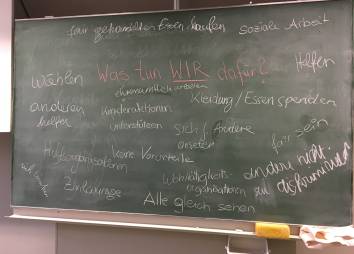 fair gehandelten Essen kaufen
soziale Arbeit
Wählen
Was tun WIR dafür?
Helfen
ehrenamtlich arbeiten
anderen helfen
Kinderaktionen
unterstützen
Kleidung/Essen spenden
sich f. andere
einsetzen
fair sein
Hilfsorganisationen
keine Vorurteile
Wohltätigkeits-
organisationen
andere nicht
zu diskriminieren
Zivilcourage
Alle gleich sehen